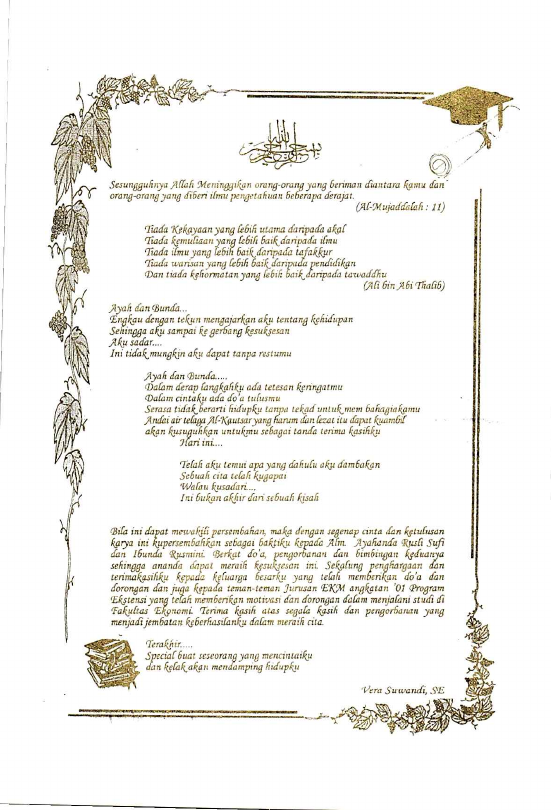 بسم الله الرحمن الرحيم
Sesungguhnya Allah Meninggikan orang-orang yang beriman diantara kamu dan
orang-orang yang diberi ilmu pengetahuan beberapa derajat.
(Al-Mujaddalah : 11)
Tiada Kekayaan yang lebih utama daripada akal
Tiada kemuliaan yang lebih baik daripada ilmu
Tiada ilmu yang lebih baik daripada tafakkur
Tiada warisan yang lebih baik daripada pendidikan
Dan tiada kehormatan yang lebih baik daripada tawaddhu
(Ali bin Abi Thalib)
Ayah dan Bunda...
Engkau dengan tekun mengajarkan aku tentang kehidupan
Sehingga aku sampai ke gerbang kesuksesan
Aku sadar....
Ini tidak mungkin aku dapat tanpa restumu
Ayah dan Bunda.....
Dalam derap langkahku ada tetesan keringatmu
Dalam cintaku ada do'a tulusmu
Serasa tidak berarti hidupku tanpa tekad untuk mem bahagiakamu
Andai air telaga Al-Kautsar yang harum dan lezat itu dapat kuambil
akan kusuguhkan untukmu sebagai tanda terima kasihku
Hari ini....
Telah aku temui apa yang dahulu aku dambakan
Sebuah cita telah kugapai
Walau kusadari....
Ini bukan akhir dari sebuah kisah
Bila ini dapat mewakili persembahan, maka dengan segenap cinta dan ketulusan
karya ini kupersembahkan sebagai baktiku kepada Alm. Ayahanda Rusli Sufi
dan Ibunda Rusmini. Berkat do'a, pengorbanan dan bimbingan keduanya
sehingga ananda dapat meraih kesuksesan ini. Sekalung penghargaan dan
terimakasihku kepada keluarga besarku yang telah memberikan do'a dan
dorongan dan juga kepada teman-teman Jurusan EKM angkatan '01 Program
Ekstensi yang telah memberikan motivasi dan dorongan dalam menjalani studi di
Fakultas Ekonomi. Terima kasih atas segala kasih dan pengorbanan yang
menjadi jembatan keberhasilanku dalam meraih cita.
Terakhir.....
Special buat seseorang yang mencintaiku
dan kelak akan mendamping hidupku
Vera Suwandi, SE